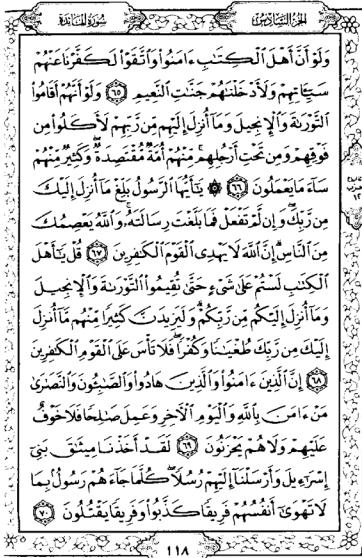 الجزء السادس
سورة المائدة
وَلَوْ أَنَّ أَهْلَ ٱلْكِتَٰبِ ءَامَنُوا۟ وَٱتَّقَوْا۟ لَكَفَّرْنَا عَنْهُمْ
سَيِّـَٔاتِهِمْ وَلَأَدْخَلْنَٰهُمْ جَنَّٰتِ ٱلنَّعِيمِ ٦٥ وَلَوْ أَنَّهُمْ أَقَامُوا۟
ٱلتَّوْرَىٰةَ وَٱلْإِنجِيلَ وَمَآ أُنزِلَ إِلَيْهِم مِّن رَّبِّهِمْ لَأَكَلُوا۟ مِن
فَوْقِهِمْ وَمِن تَحْتِ أَرْجُلِهِم مِّنْهُمْ أُمَّةٌ مُّقْتَصِدَةٌ وَكَثِيرٌ مِّنْهُمْ
سَآءَ مَا يَعْمَلُونَ ٦٦ ۞ يَٰٓأَيُّهَا ٱلرَّسُولُ بَلِّغْ مَآ أُنزِلَ إِلَيْكَ
مِن رَّبِّكَ وَإِن لَّمْ تَفْعَلْ فَمَا بَلَّغْتَ رِسَالَتَهُۥ وَٱللَّهُ يَعْصِمُكَ
مِنَ ٱلنَّاسِ إِنَّ ٱللَّهَ لَا يَهْدِى ٱلْقَوْمَ ٱلْكَٰفِرِينَ ٦٧ قُلْ يَٰٓأَهْلَ
ٱلْكِتَٰبِ لَسْتُمْ عَلَىٰ شَىْءٍ حَتَّىٰ تُقِيمُوا۟ ٱلتَّوْرَىٰةَ وَٱلْإِنجِيلَ
وَمَآ أُنزِلَ إِلَيْكُم مِّن رَّبِّكُمْ وَلَيَزِيدَنَّ كَثِيرًا مِّنْهُم مَّآ أُنزِلَ
إِلَيْكَ مِن رَّبِّكَ طُغْيَٰنًا وَكُفْرًا فَلَا تَأْسَ عَلَى ٱلْقَوْمِ ٱلْكَٰفِرِينَ
٦٨ إِنَّ ٱلَّذِينَ ءَامَنُوا۟ وَٱلَّذِينَ هَادُوا۟ وَٱلصَّٰبِـُٔونَ وَٱلنَّصَٰرَىٰ
مَنْ ءَامَنَ بِٱللَّهِ وَٱلْيَوْمِ ٱلْـَٔاخِرِ وَعَمِلَ صَٰلِحًا فَلَا خَوْفٌ
عَلَيْهِمْ وَلَا هُمْ يَحْزَنُونَ ٦٩ لَقَدْ أَخَذْنَا مِيثَٰقَ بَنِىٓ
إِسْرَٰٓءِيلَ وَأَرْسَلْنَآ إِلَيْهِمْ رُسُلًا كُلَّمَا جَآءَهُمْ رَسُولٌۢ بِمَا
لَا تَهْوَىٰٓ أَنفُسُهُمْ فَرِيقًا كَذَّبُوا۟ وَفَرِيقًا يَقْتُلُونَ ٧٠
١١٨